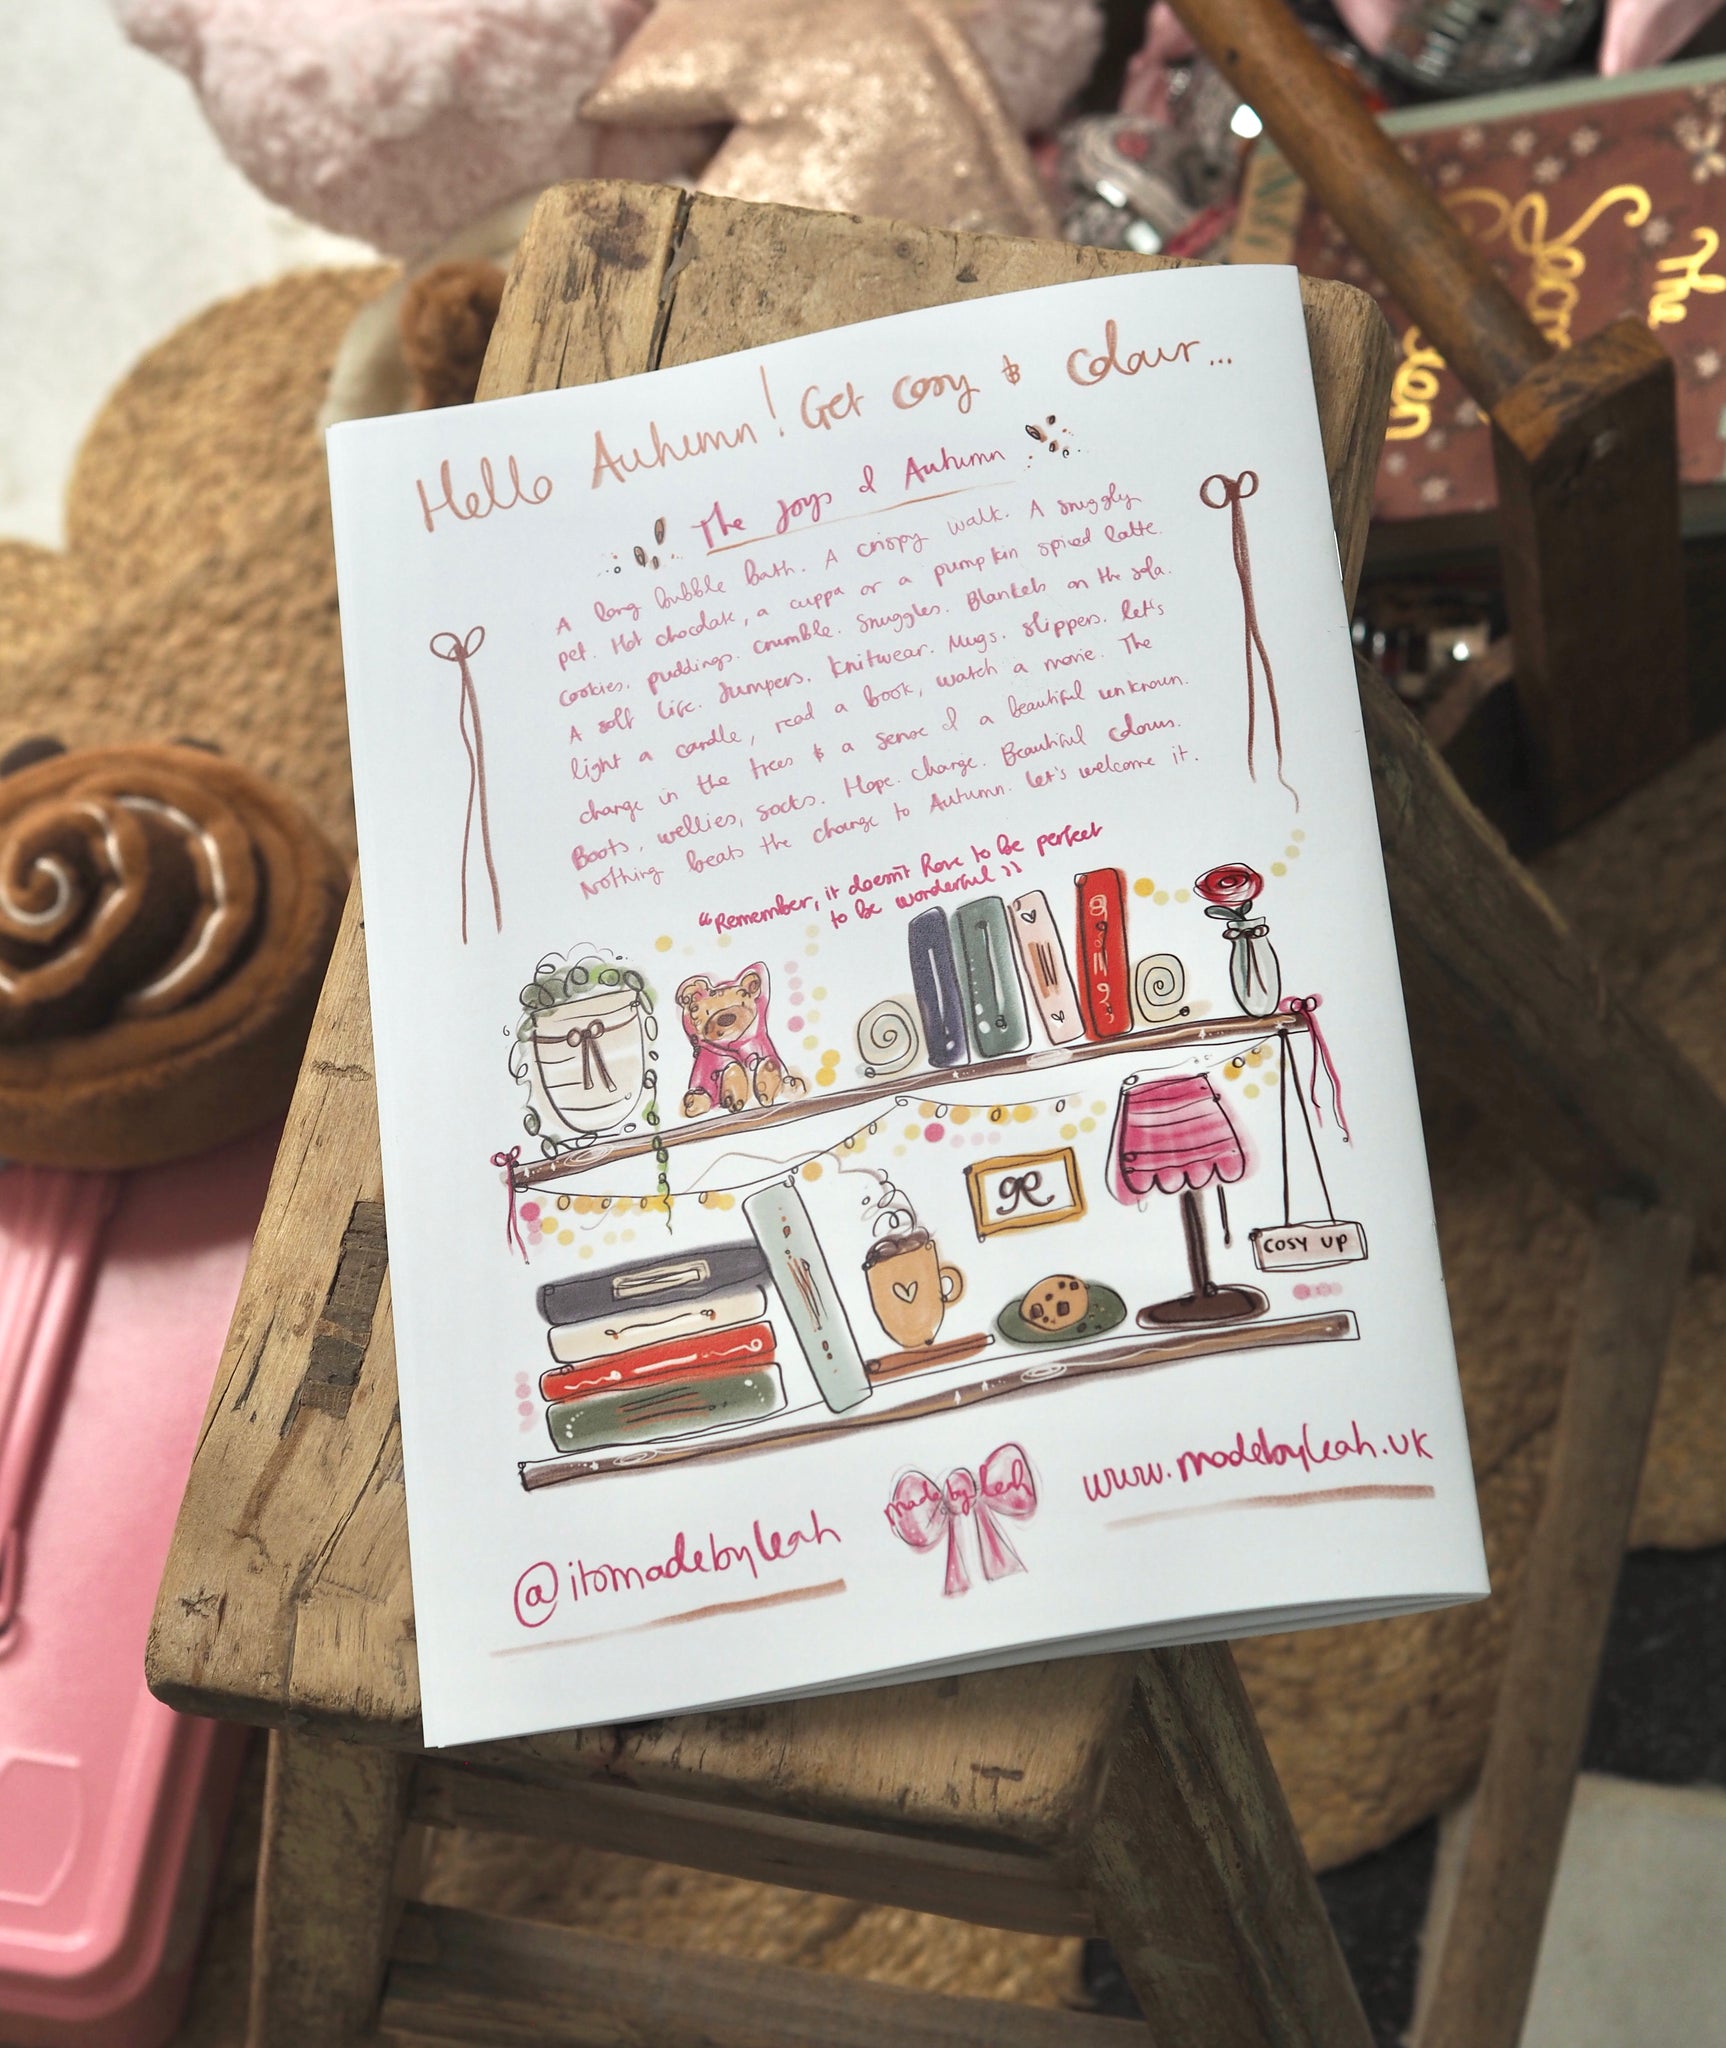 Hello Autumn! Get cosy & colour...
The Joys of Autumn
A long bubble bath. A crispy walk. A snuggly
pet. Hot chocolate, a cuppa or a pumpkin spiced latte.
Cookies. puddings. crumble. Snuggles. Blankets on the sofa.
A soft life. Jumpers. Knitwear. Mugs. Slippers. let's
light a candle, read a book, watch a movie. The
change in the trees & a sense of a beautiful unknown.
Boots, wellies, socks. Hope. Change. Beautiful colours.
Nothing beats the change to Autumn. Let's welcome it.
"Remember, it doesn't have to be perfect
to be wonderful"
COSY UP
@itsmadebyleah
made by leah
www.madebyleah.uk
The